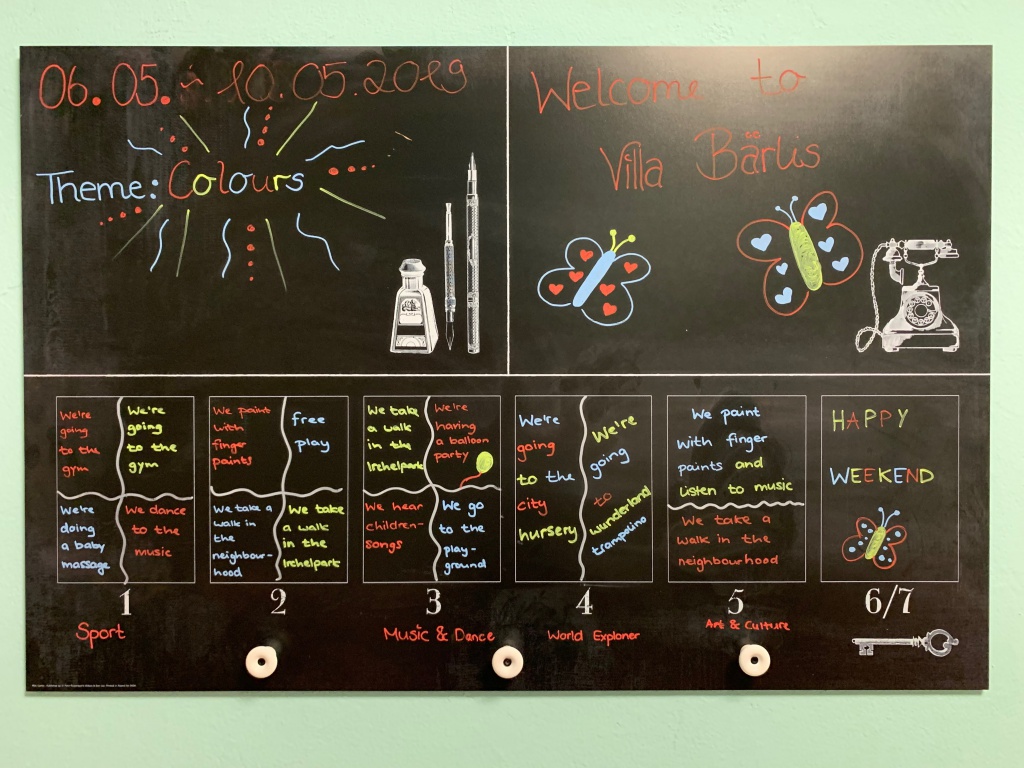 06.05. - 10.05.2019
Theme: Colours
Welcome to
Villa Bärlis
We're
going
to the
gym
We're
going
to the
gym
We're
doing
a baby
massage
We dance
to the
music
1
Sport
We paint
with
finger
paints
free
play
We take a
walk in
the
neighbour-
hood
We take
a walk
in the
Irchelpark
2
We take
a walk
in the
Irchelpark
We're
having
a balloon
party
We hear
children-
songs
We go
to the
play-
ground
3
Music & Dance
We're
going
to the
city
nursery
We're
going
to
wunderland
trampolino
4
World Explorer
We paint
with finger
paints and
listen to music
We take a
walk in the
neighbourhood
5
Art & Culture
HAPPY
WEEKEND
6/7